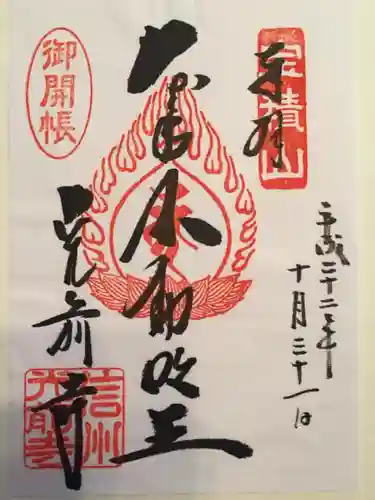 奉拝
宝積山
平成二十二年
十月三十一日
大聖不動明王
御開帳
光前寺
信州
光前寺